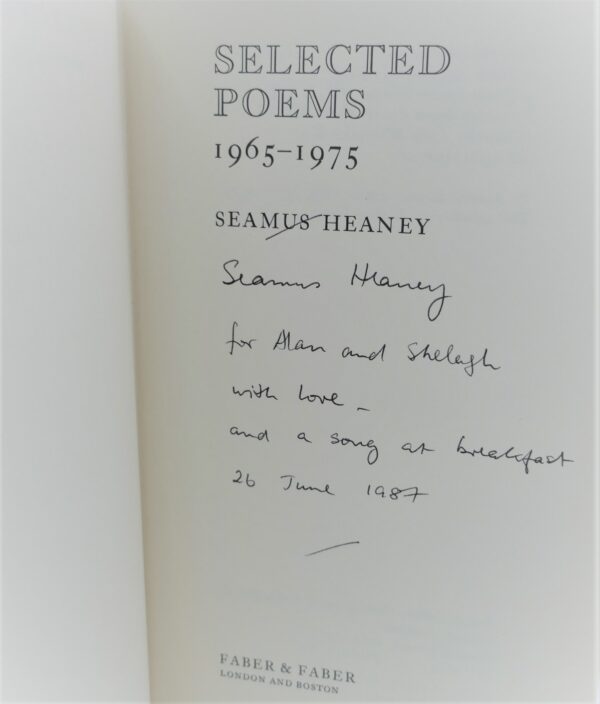 SELECTED
POEMS
1965–1975
SEAMUS HEANEY
Seamus Heaney
for Alan and Shelagh
with love –
and a song at breakfast
26 June 1987
FABER & FABER
LONDON AND BOSTON